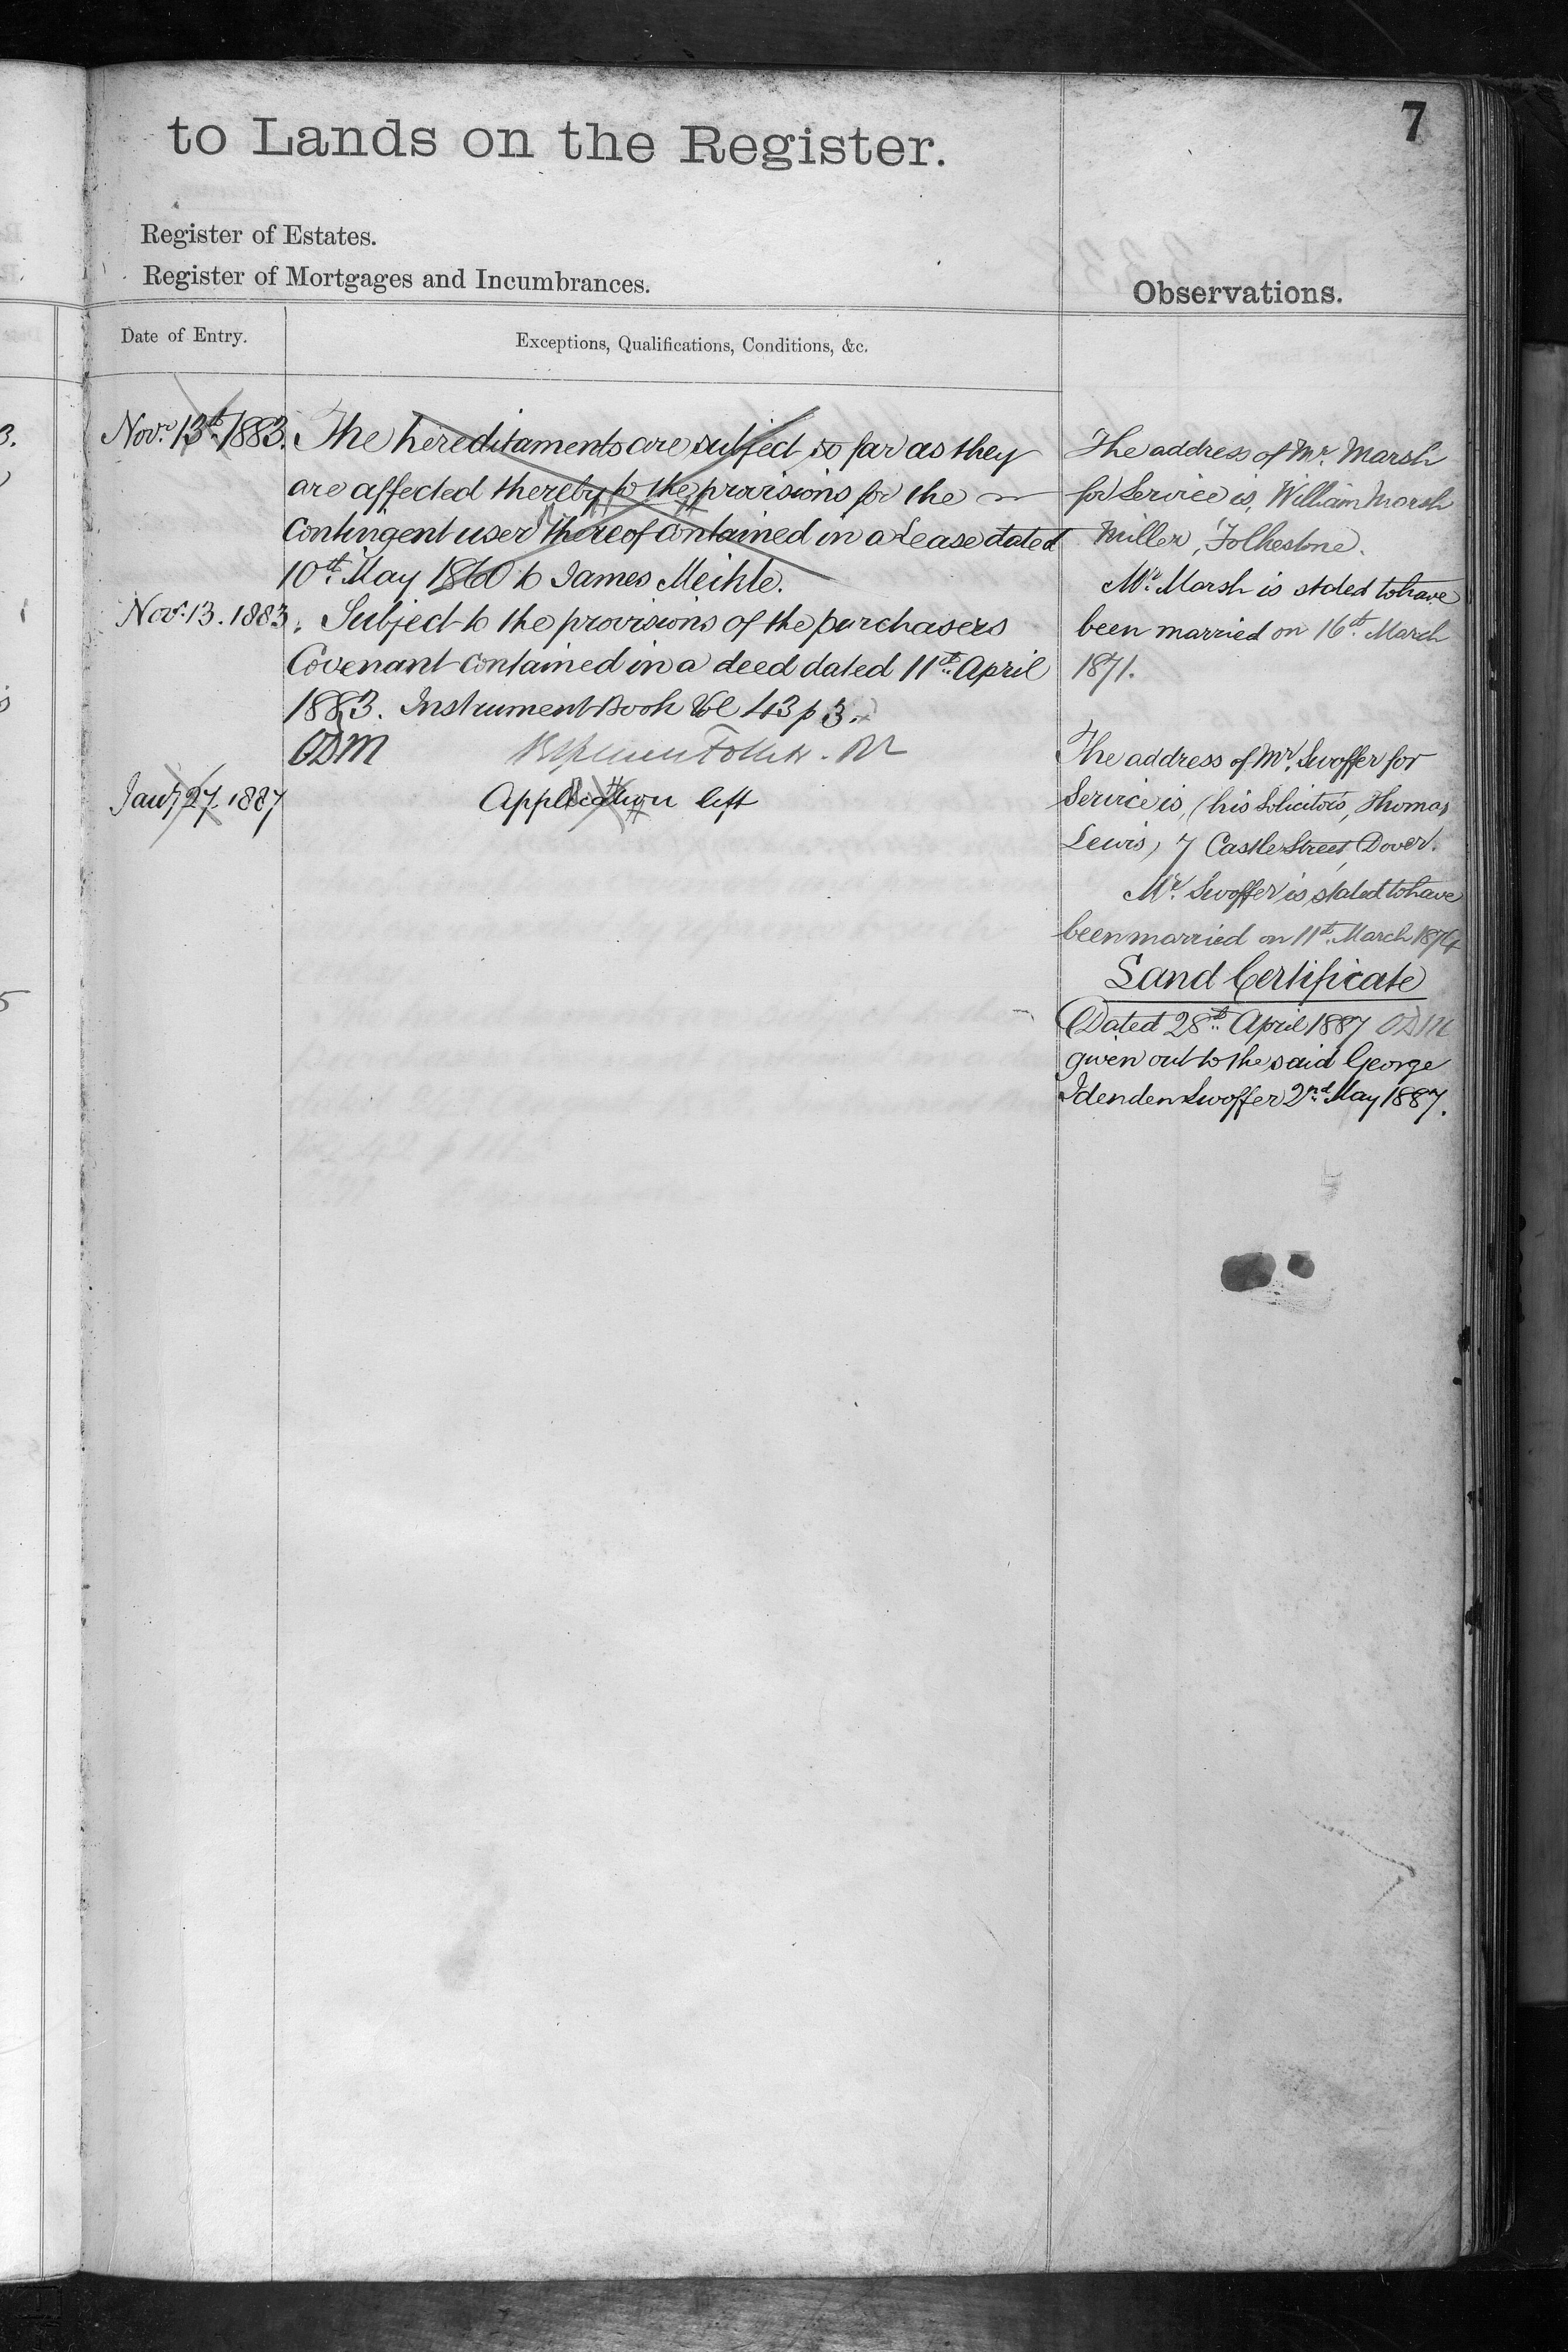 7
to Lands on the Register.
Register of Estates.
Register of Mortgages and Incumbrances.
Observations.
Date of Entry.
Exceptions, Qualifications, Conditions, &c.
Novr. 13th. 1883. The hereditaments are subject so far as they
are affected thereby to the provisions for the
contingent user thereof contained in a Lease dated
10th. May 1860 to James Meikle.
Novr. 13. 1883. Subject to the provisions of the purchasers
Covenant contained in a deed dated 11th. April
1883. Instrument Book Vol 43 p 3.
ODM
Jany 27. 1887 Application left
The address of Mr. Marsh
for Service is, William Marsh
Miller, Folkestone.
Mr. Marsh is stated to have
been married on 16th. March
1871.
The address of Mr. Swoffer for
Service is, (his Solicitors, Thomas
Lewis) 7 Castle Street, Dover.
Mr. Swoffer is stated to have
been married on 11th. March 1874
Land Certificate
Dated 28th. April 1887 ODM
given out to the said George
Idenden Swoffer 2nd. May 1887.